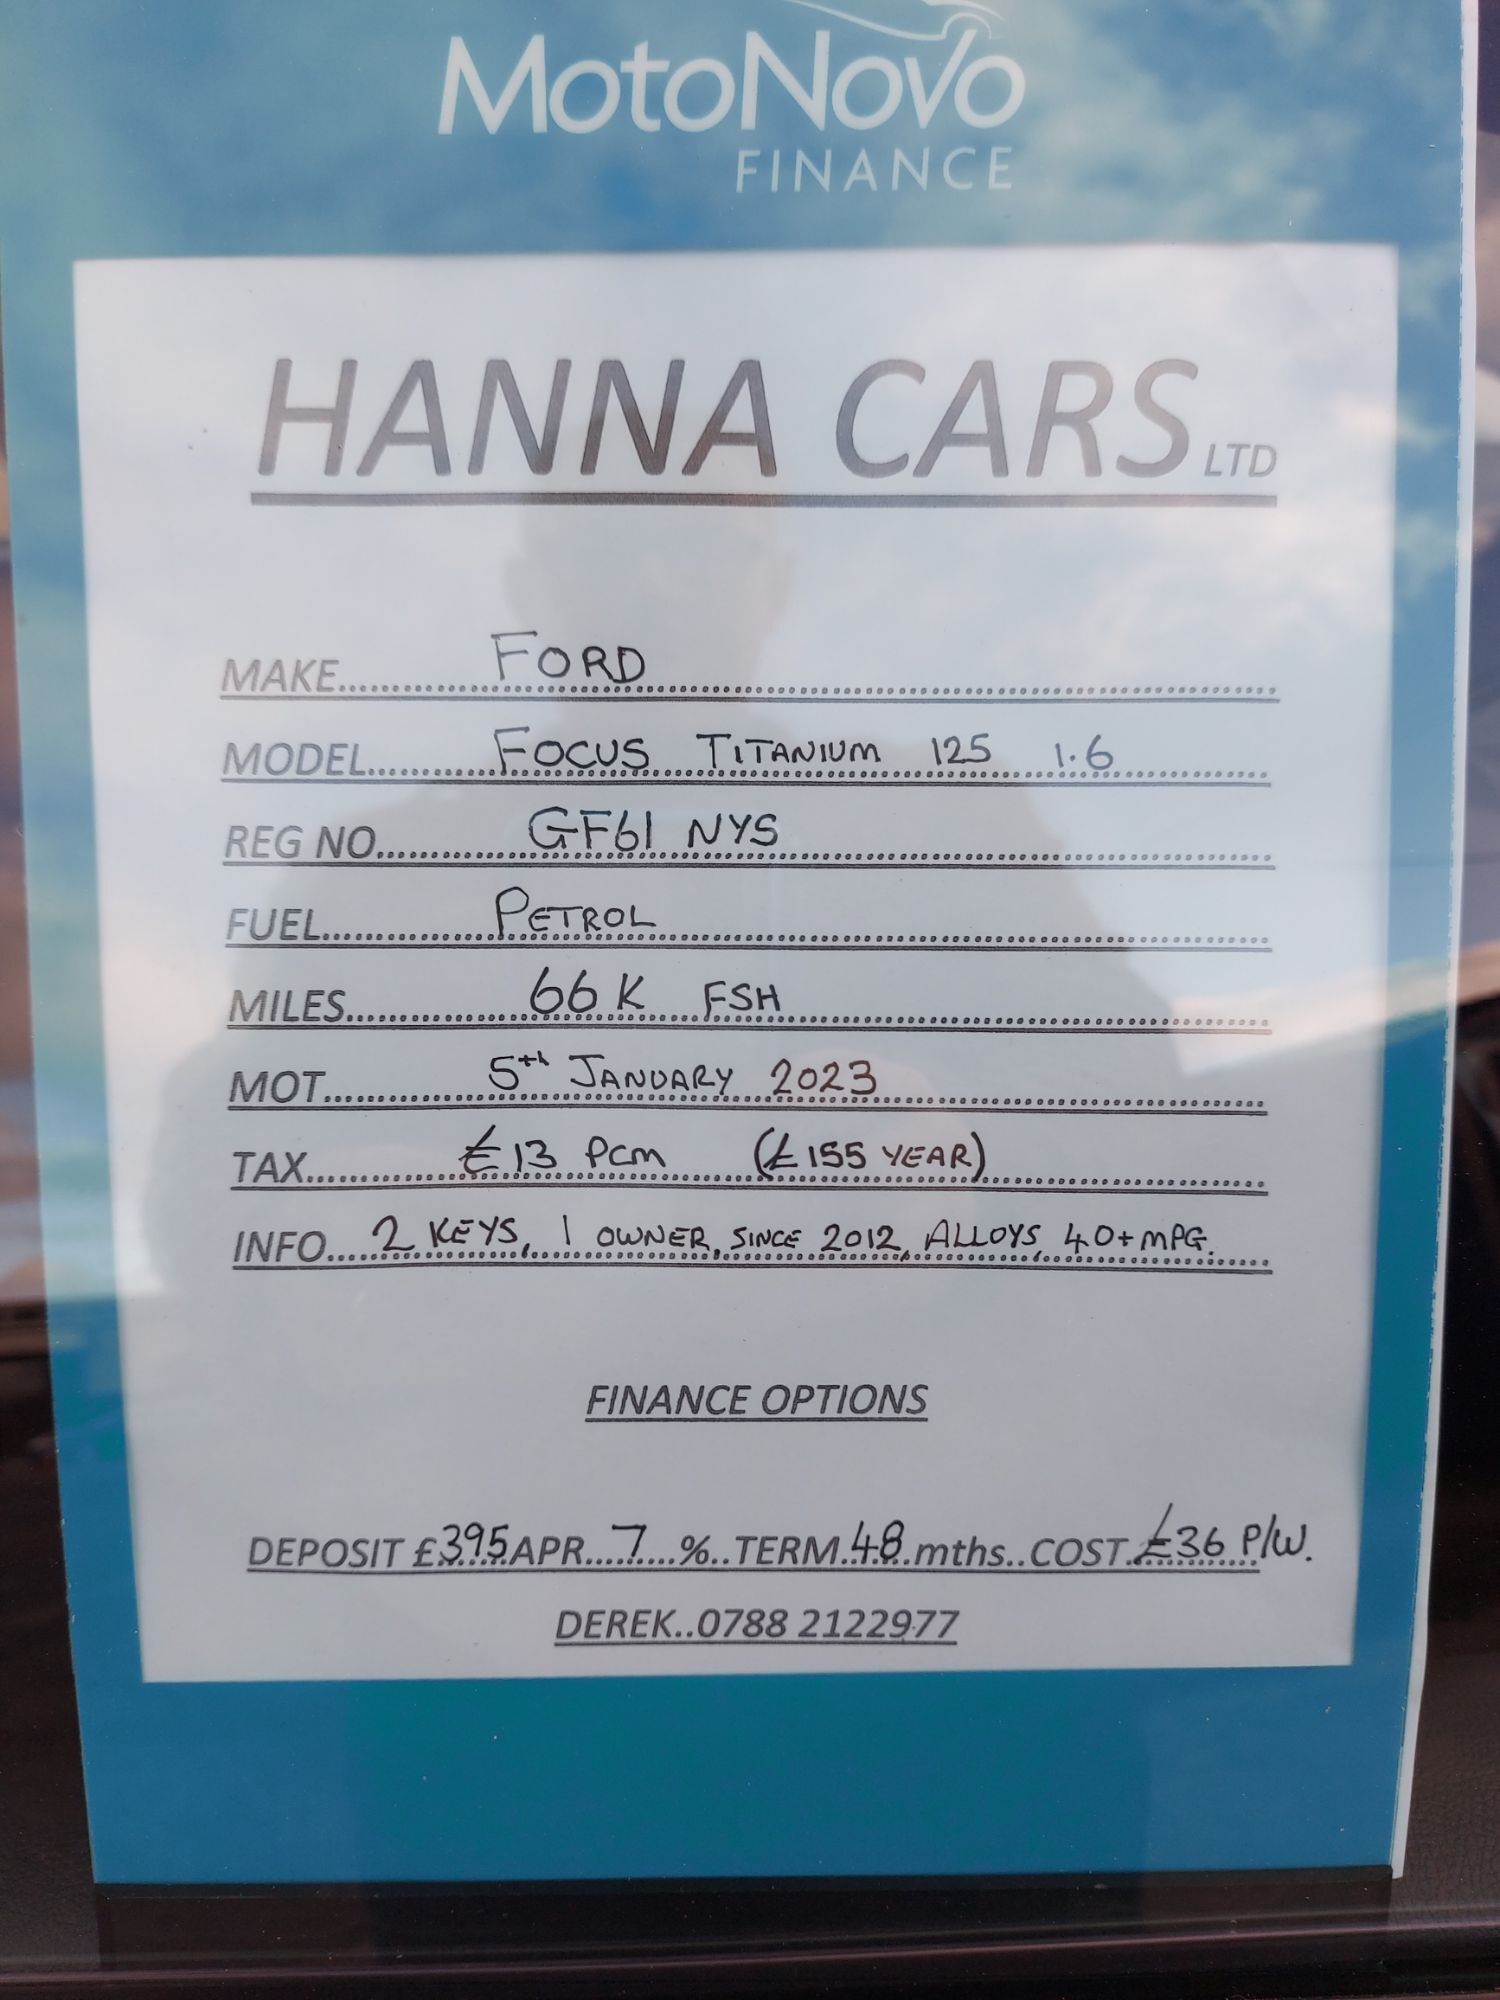 MotoNovo
FINANCE
HANNA CARS LTD
MAKE........FORD........
MODEL........FOCUS TITANIUM 125 1.6........
REG NO........GF61 NYS........
FUEL........PETROL........
MILES........66K FSH........
MOT........5th JANUARY 2023........
TAX........£13 PCM (£155 YEAR)........
INFO.....2 KEYS, 1 OWNER, SINCE 2012, ALLOYS, 40+ MPG.....
FINANCE OPTIONS
DEPOSIT £395 APR....7....%..TERM.48.mths..COST..£36 P/W.
DEREK..0788 2122977